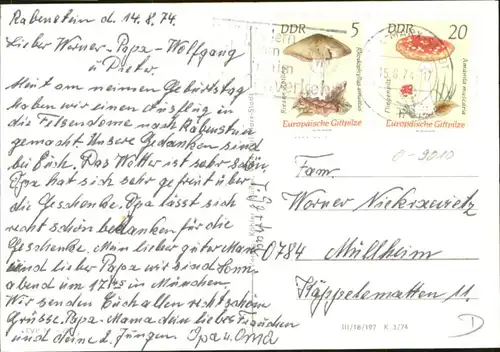 Rabenstein d. 14.8.74.
Lieber Werner - Papa - Wolfgang
u Dieter.
Heut am meinen Geburtstag
haben wir einen Ausflug in
die Felsendome nach Rabenstein
gemacht. Unsere Gedanken sind
bei Euch. Das Wetter ist sehr schön
Opa hat sich sehr gefreut über
die Geschenke. Opa lässt sich
recht schön bedanken für die
Geschenke. Mein lieber guter Mann
und lieber Papa wir sind Sonn-
abend um 17 in München.
Wir senden Euch allen recht schöne
Grüsse. Papa - Mama dein liebes Frauchen
und deine 2 Jungen. Opa u. Oma
DDR 5
Europäische Giftpilze
DDR 20
Amanita muscaria
Europäische Giftpilze
15.8.74-17
0-9010
Fam.
Werner
0784 Müllheim
Käppelematten 11.
III/18/197 K 3/74
D